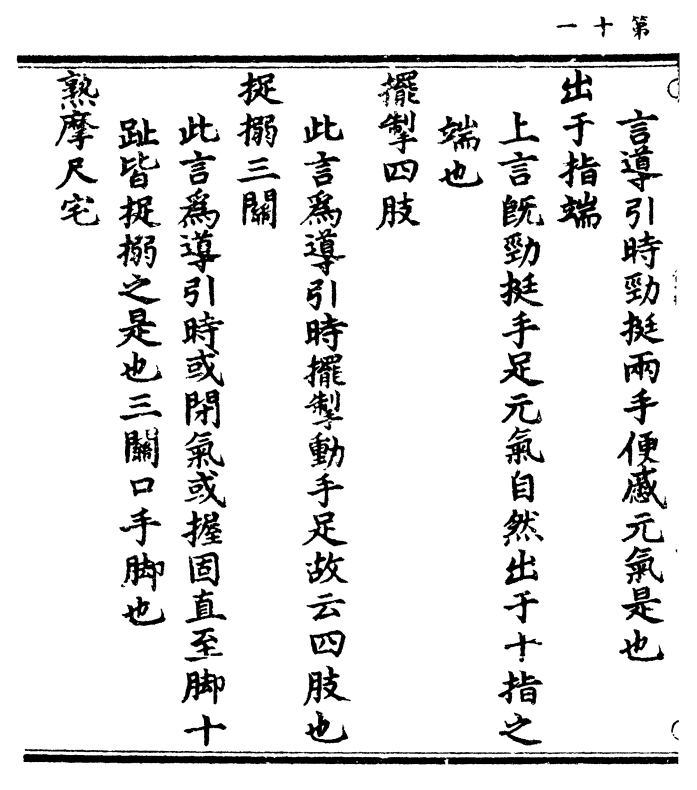 第十一
言導引時勁挺兩手便感元氣是也
出于指端
上言既勁挺手足元氣自然出于十指之
端也
擺掣四肢
此言爲導引時擺掣動手足故云四肢也
捉搦三關
此言爲導引時或閉氣或握固直至脚十
趾皆捉搦之是也三關口手脚也
熟摩尺宅